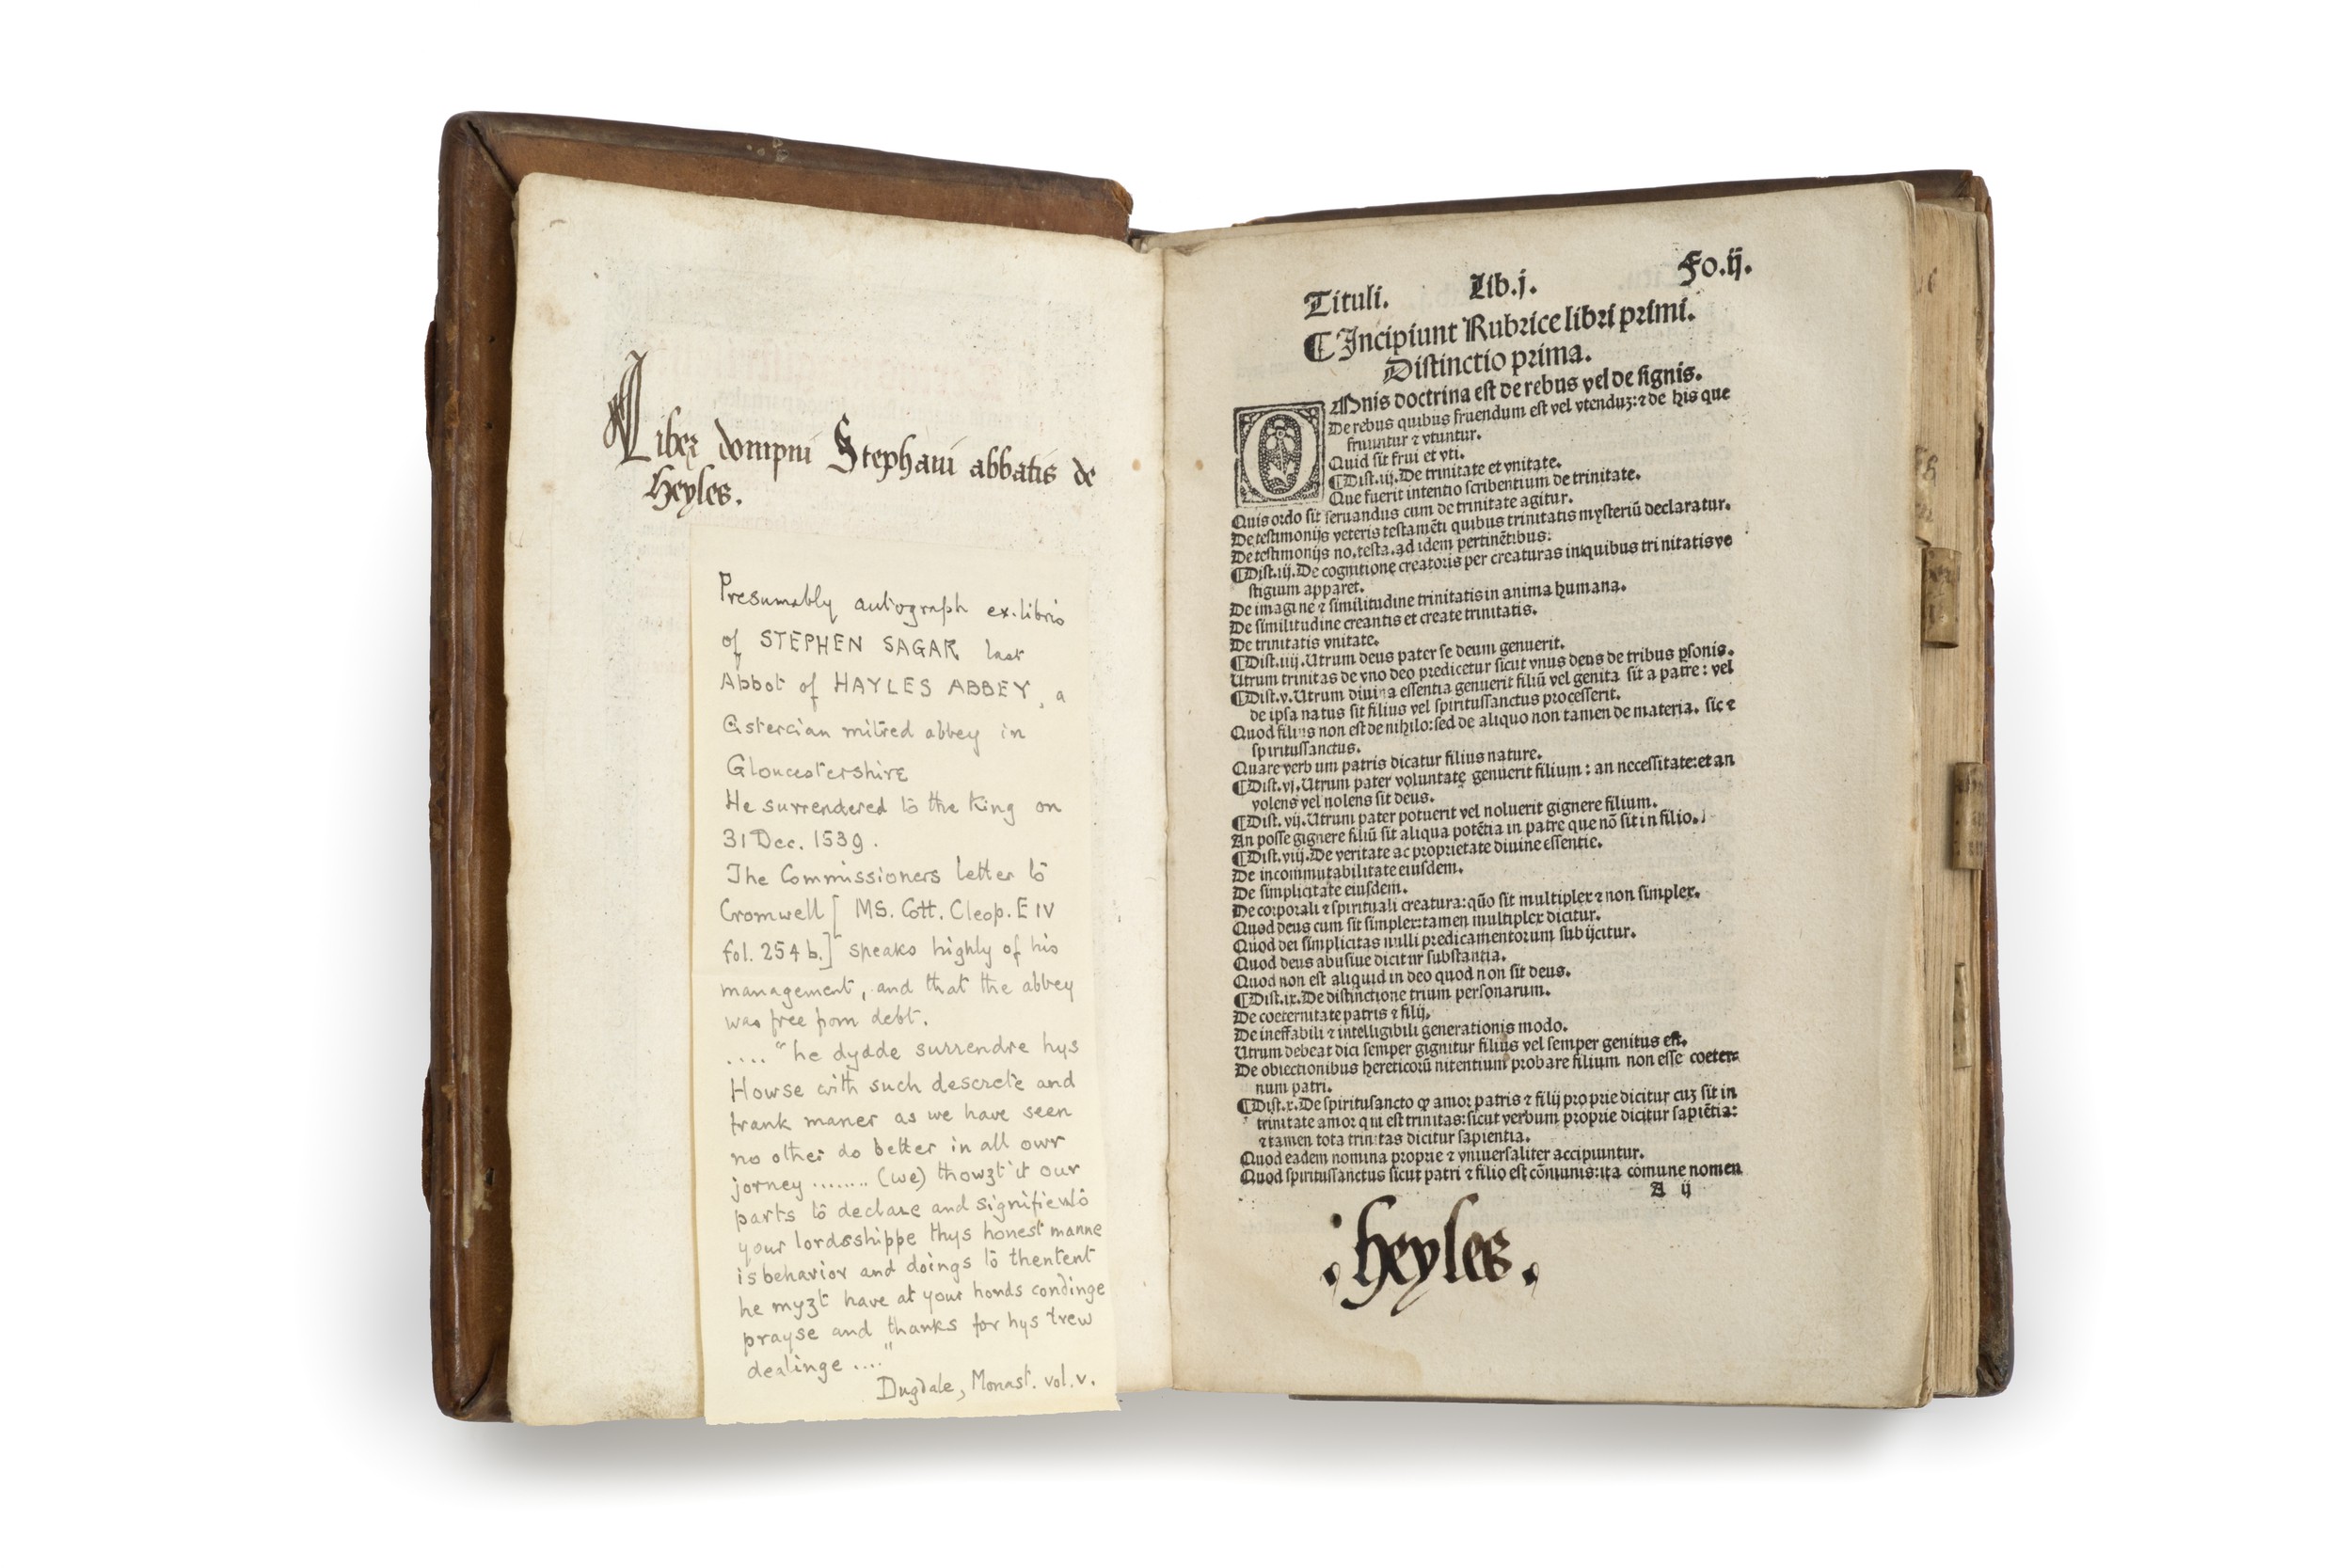 Liber dompni Stephani abbatis de
heyles.
Presumably autograph ex-libris
of STEPHEN SAGAR last
Abbot of HAYLES ABBEY, a
Cistercian mitred abbey in
Gloucestershire
He surrendered to the King on
31 Dec. 1539.
The Commissioners letter to
Cromwell [MS. Cott. Cleop. E IV
fol. 254 b.] speaks highly of his
management, and that the abbey
was free from debt.
.... "he dydde surrendre hys
Howse with such descrete and
frank maner as we have seen
no other do better in all owr
jorney ........ (we) thowȝt it our
parts to declare and signifie to
your lordsshippe thys honest manne
is behavior and doings to thentent
he myȝt have at your honds condinge
prayse and thanks for hys trew
dealinge ...."
Dugdale, Monast. vol. v.
Tituli. Lib.j. Fo.ij.
¶Incipiunt Rubrice libri primi.
Distinctio prima.
OMnis doctrina est de rebus vel de signis.
De rebus quibus fruendum est vel vtenduꝫ: ⁊ de his que
fruuntur ⁊ vtuntur.
Quid sit frui et vti.
¶Dist.ij. De trinitate et vnitate.
Que fuerit intentio scribentium de trinitate.
Quis ordo sit seruandus cum de trinitate agitur.
De testimonijs veteris testamēti quibus trinitatis mysteriū declaratur.
De testimonijs no. testa. ad idem pertinētibus.
¶Dist.iij. De cognitione creatoris per creaturas in quibus trinitatis ve
stigium apparet.
De imagine ⁊ similitudine trinitatis in anima humana.
De similitudine creantis et create trinitatis.
De trinitatis vnitate.
¶Dist.iiij. Utrum deus pater se deum genuerit.
Utrum trinitas de vno deo predicetur sicut vnus deus de tribus ꝑsonis.
¶Dist.v. Utrum diuina essentia genuerit filiū vel genita sit a patre: vel
de ipsa natus sit filius vel spiritussanctus processerit.
Quod filius non est de nihilo: sed de aliquo non tamen de materia. sic ⁊
spiritussanctus.
Quare verbum patris dicatur filius nature.
¶Dist.vj. Utrum pater voluntate genuerit filium: an necessitate: et an
volens vel nolens sit deus.
¶Dist.vij. Utrum pater potuerit vel noluerit gignere filium.
An posse gignere filiū sit aliqua potētia in patre que nō sit in filio.
¶Dist.viij. De veritate ac proprietate diuine essentie.
De incommutabilitate eiusdem.
De simplicitate eiusdem.
De corporali ⁊ spirituali creatura: quō sit multiplex ⁊ non simplex.
Quod deus cum sit simplex: tamen multiplex dicitur.
Quod dei simplicitas nulli predicamentorum subijcitur.
Quod deus abusiue dicitur substantia.
Quod non est aliquid in deo quod non sit deus.
¶Dist.ix. De distinctione trium personarum.
De coeternitate patris ⁊ filij.
De ineffabili ⁊ intelligibili generationis modo.
Utrum debeat dici semper gignitur filius vel semper genitus est.
De obiectionibus hereticorū nitentium probare filium non esse coeter-
num patri.
¶Dist.x. De spiritusancto ꝙ amor patris ⁊ filij proprie dicitur cuꝫ sit in
trinitate amor qui est trinitas: sicut verbum proprie dicitur sapiētia:
⁊ tamen tota trinitas dicitur sapientia.
Quod eadem nomina proprie ⁊ vniuersaliter accipiuntur.
Quod spiritussanctus sicut patri ⁊ filio est cōmunis: ita comune nomen
A ij
.heyles.